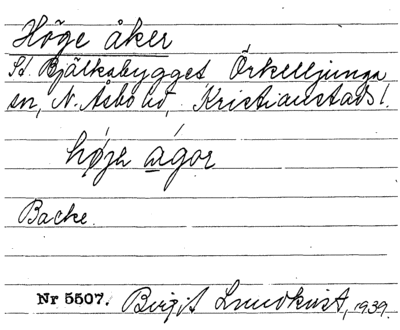 Höge åker
St. Bjälkabygget Örkelljunga
sn, N. Åsbo hd, Kristianstads l.
højə ágor
Backe.
Nr 5507. Birgit Lundkvist, 1939.